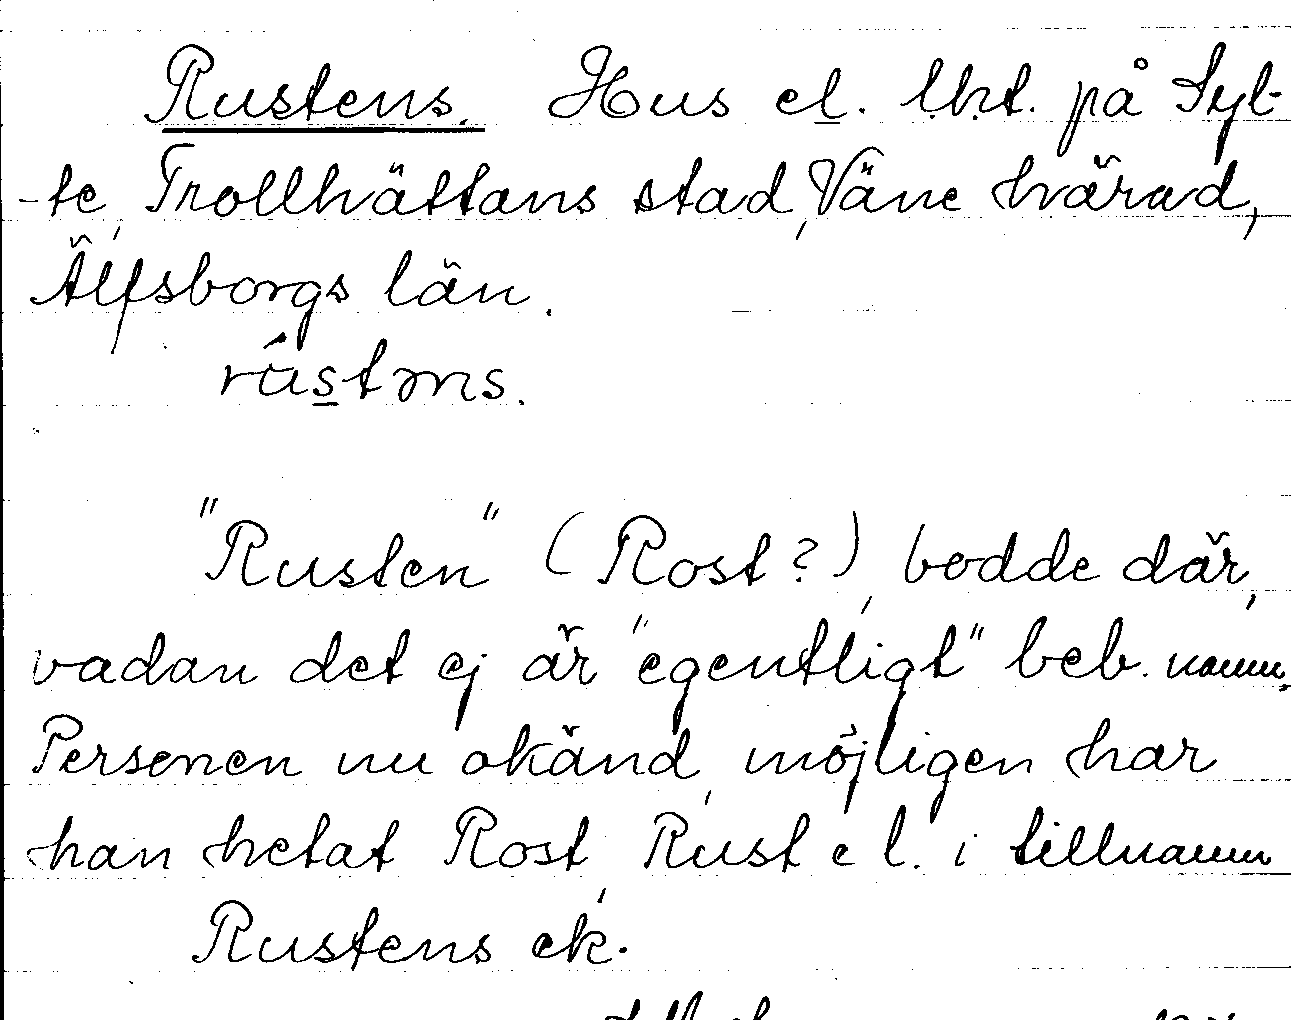 Rustens. Hus el. lht. på Syl-
-te, Trollhättans stad, Väne härad,
Älfsborgs län.
rústəns.
"Rusten" (Rost?), bodde där,
vadan det ej är "egentligt" beb. namn.
Personen nu okänd, möjligen har
han hetat Rost, Rust el. i tillnamn
Rustens ek.